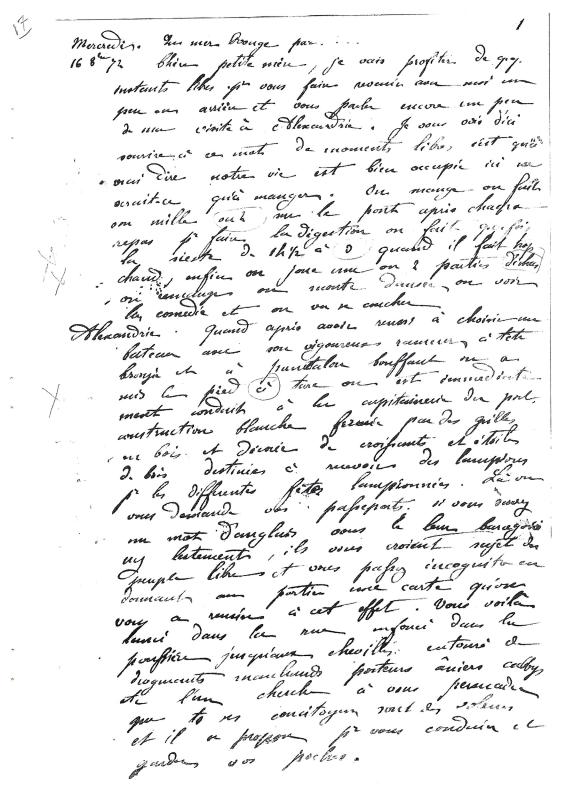 17
1
Mercredi. En mer Rouge par. ....
16 8bre 72 Chère petite mère, je vais profiter de qq.
instants libres pr vous faire revenir avec moi un
peu en arrière et vous parler encore un peu
de ma visite à Alexandrie. Je vous vois d'ici
sourire à ces mots de moments libres c'est qu'à
vrai dire notre vie est bien occupée ici ne
serait-ce qu'à manger. On mange on fait
son mille sur le pont après chaque
repas pr faire la digestion on fait qqfois
la sieste de 1h1/2 à 3 quand il fait trop
chaud, enfin on joue une ou 2 parties d'échecs
on remange on monte on voir
la comédie et on va se coucher
Alexandrie. Quand après avoir réussi à choisir un
bateau avec son vigoureux rameur à tête
bronzée et à pantalon bouffant on a
mis le pied à terre on est immédiate-
ment conduit à la capitainerie du port.
construction blanche fermée par des grilles
en bois et décorée de croissants et étoiles
de bois destinées à recevoir des lampions
pr les différentes fêtes lampionnées. Là on
vous demande vos passeports. si vous savez
un mot d'anglais vous le leur baragouinez
lestement, ils vous croient sujet du
peuple libre et vous passez incognito en
donnant au portier une carte qu'on
vous a remise à cet effet. Vous voilà
lancé dans la rue enfoncé dans la
poussière jusqu'aux chevilles entouré de
drogmans marchands porteurs âniers
etc l'un cherche à vous persuader
que ts ses concitoyens sont des voleurs
et il se propose pr vous conduire et
garder vos poches.